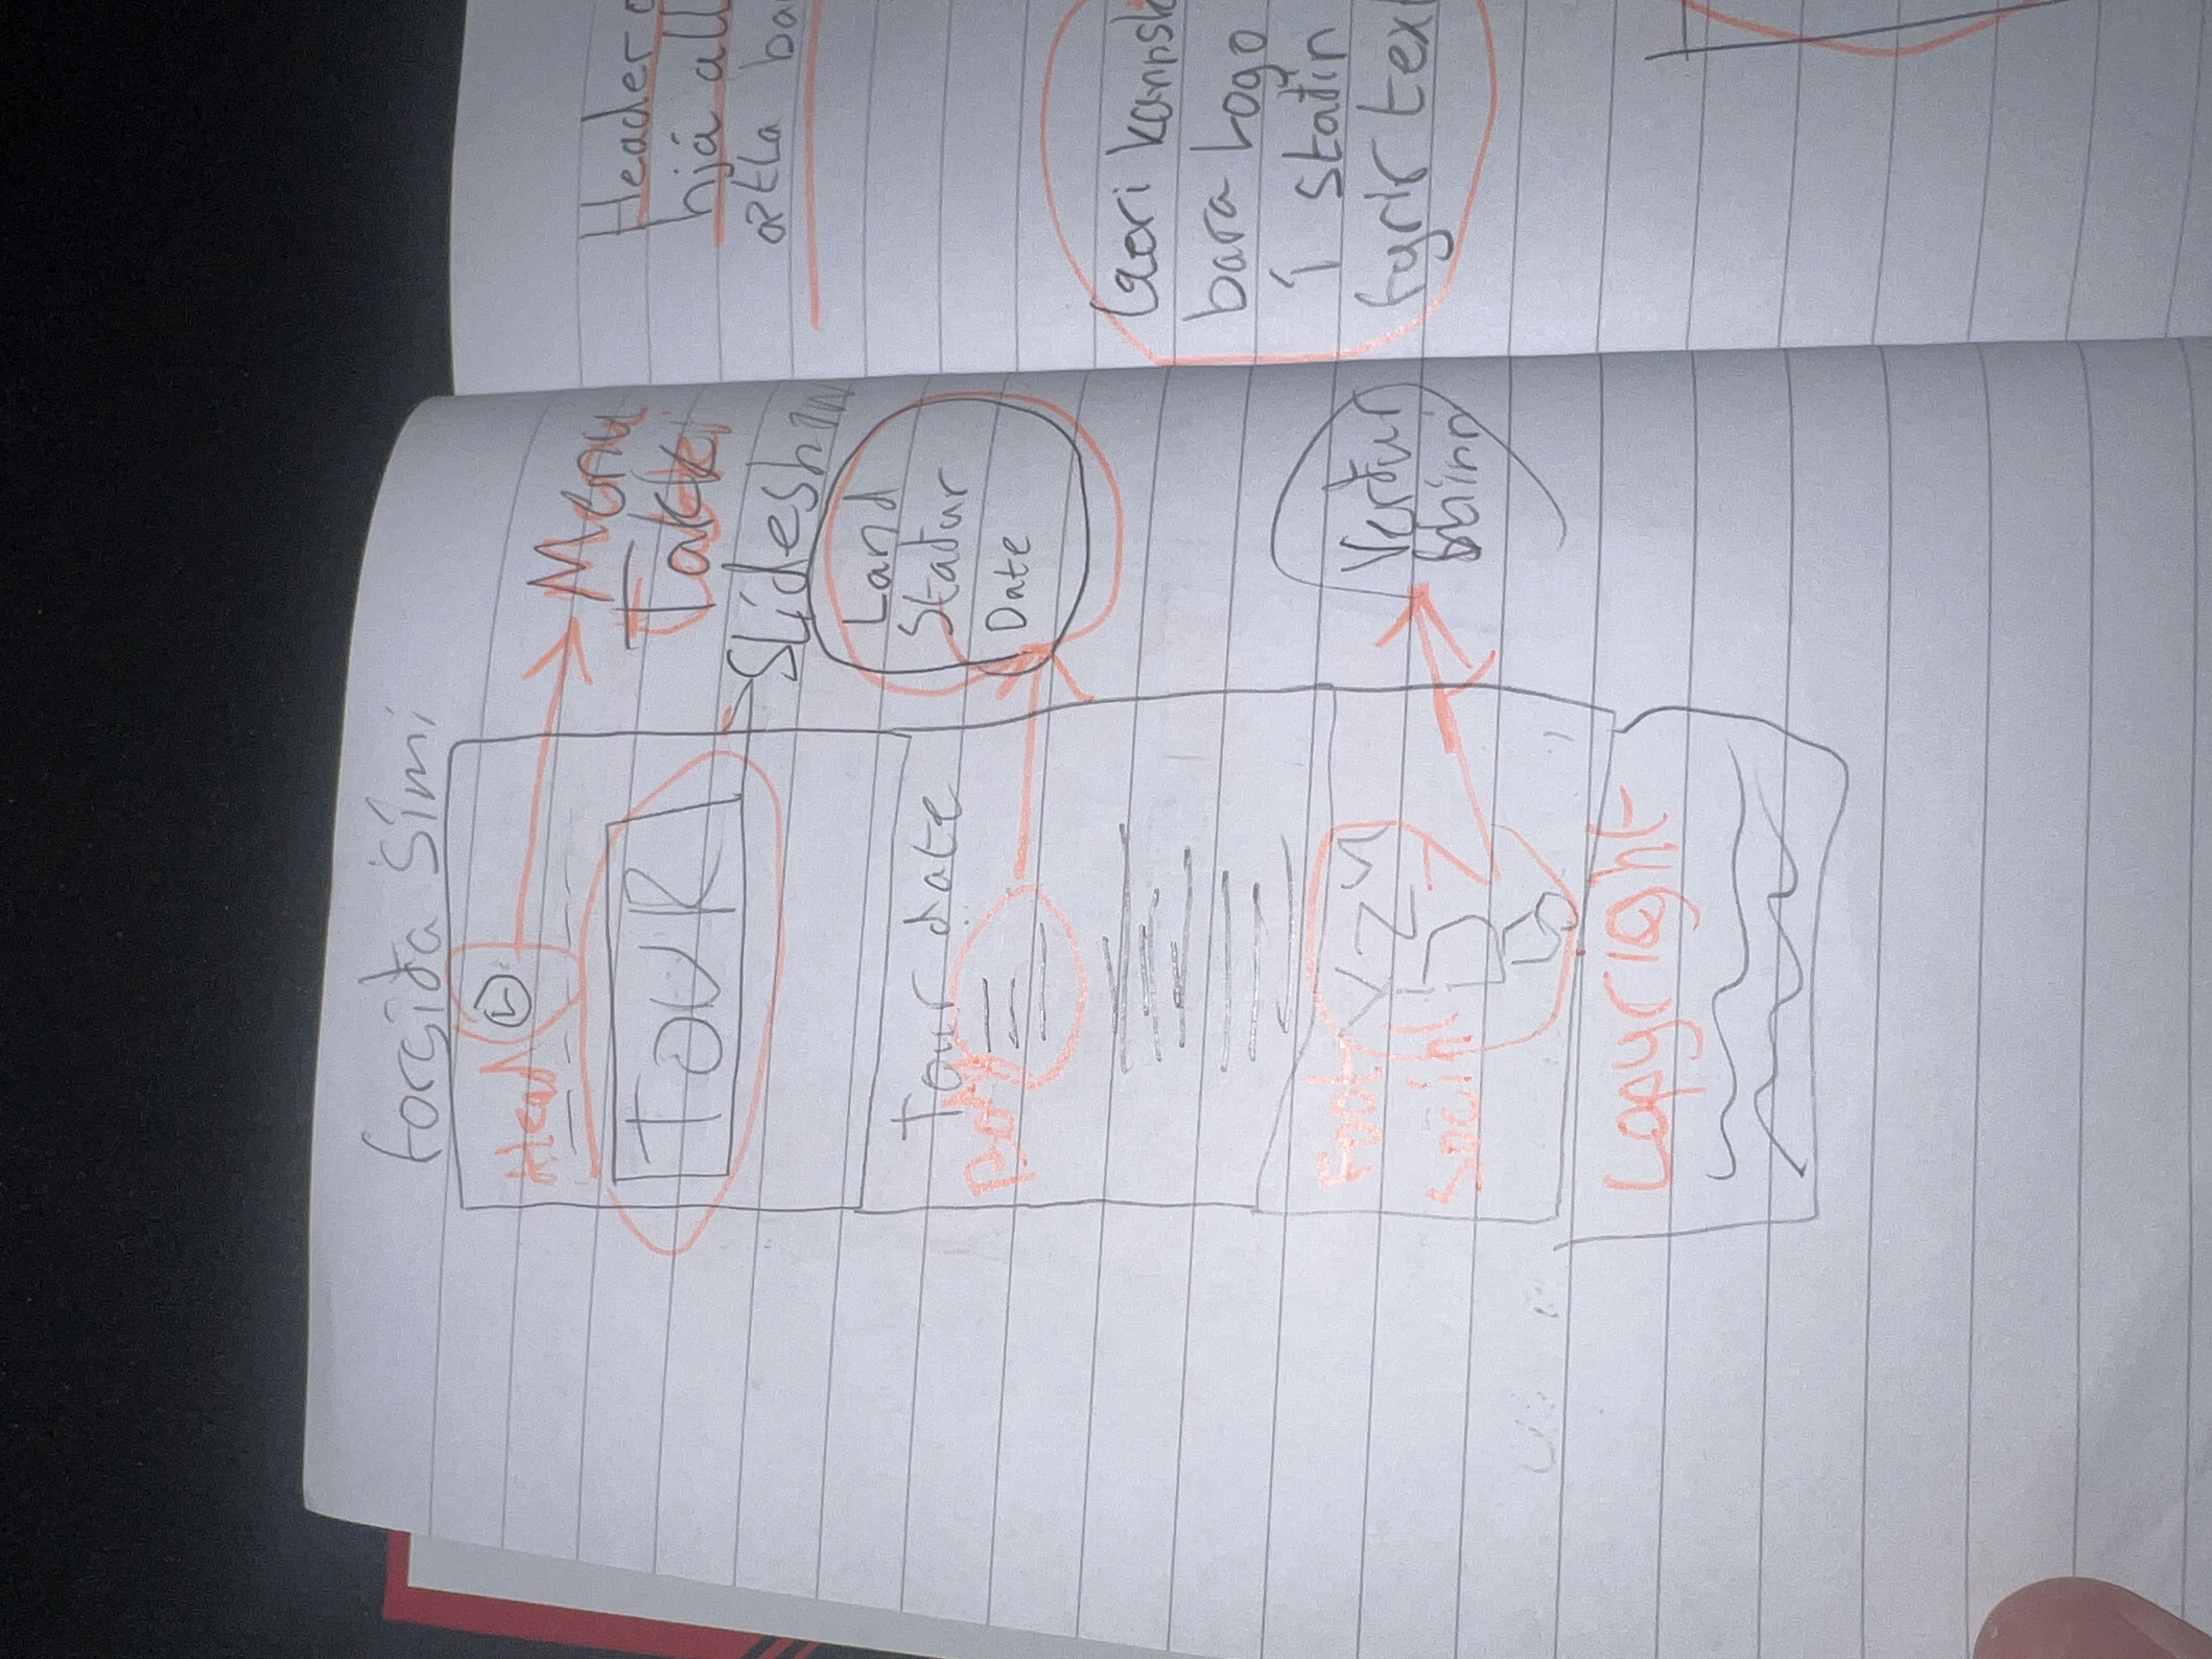 forsíða Sími
Head L
Menu
Takki
TOUR
Slideshow
Land
Staður
Date
Tour date
Body
Foot
Social
Verður
Copyright
Header
hjá all
ætla ba
Gæri kannsk
bara Logo
í staðin
fyrir tex